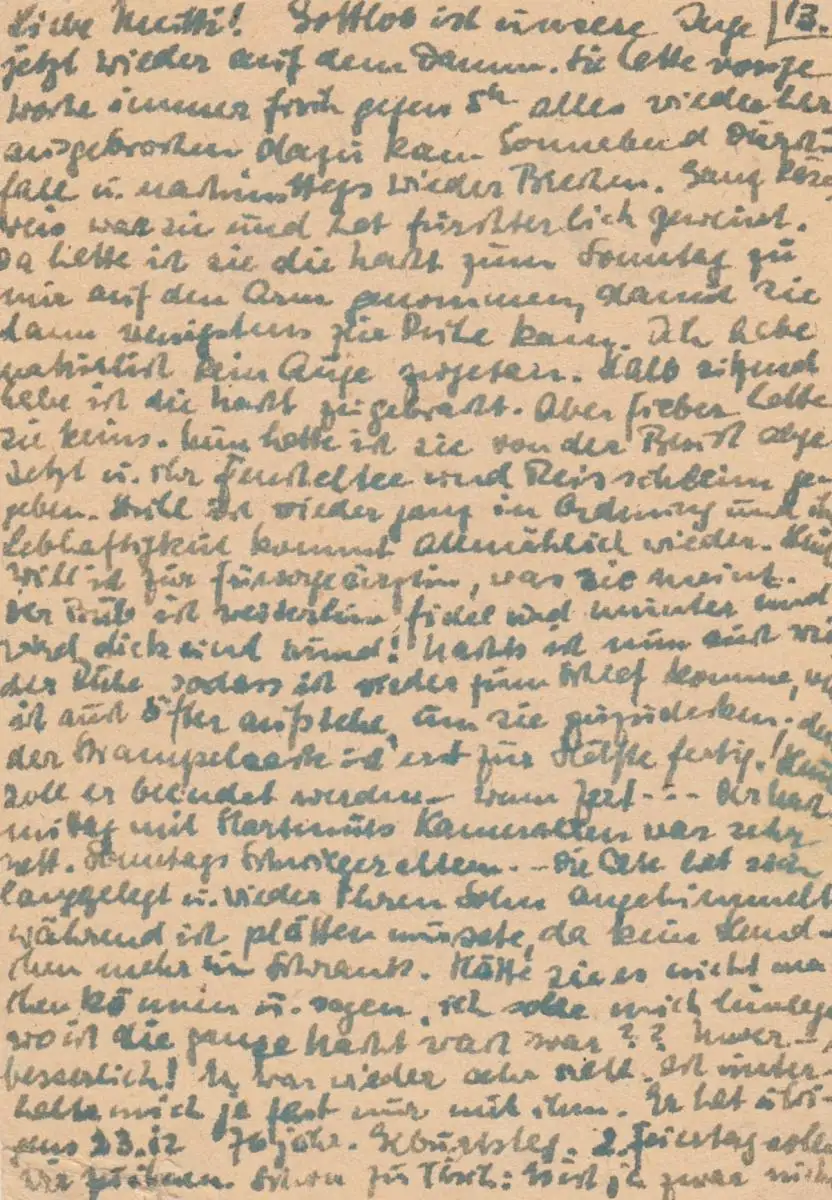 Liebe Mutti! Gottlob ist unsere Inge 13.
jetzt wieder auf dem Damm. Sie hatte vorige
Woche immer früh gegen 5h alles wieder her
ausgebrochen dazu kam Sonnabend Durch-
fall u. nachmittags wieder Brechen. Ganz käse
weis war sie und hat fürchterlich geweint.
Da hatte ich sie die Nacht zum Sonntag zu
mir auf den Arm genommen, damit sie
dann wenigstens zur Ruhe kam. Ich habe
natürlich kein Auge zugetan. Halb sitzend
habe ich die Nacht zugebracht. Aber Fieber hatte
sie keins. Nun hatte ich sie von der Brust abge
setzt u. ihr Fencheltee und Reisschleim ge
geben. Stuhl ist wieder ganz in Ordnung und
Lebhaftigkeit kommt allmählich wieder.
will ich zur Fürsorgeärztin, was sie meint.
Der Bub ist weiterhin fidel und munter und
wird dick und rund! Nachts ist nun auch
der Ruhe sodass ich wieder zum Schlaf komme,
ich auch öfter aufstehe, um sie zuzudecken,
der Strampelsack ist erst zur Hälfte fertig!
soll er beendet werden. wenn
mittag mit Hartmuts Kameraden war sehr
nett. Sonntags Schwiegereltern. - Die Olle hat sich
langgelegt u. wieder Ihren Sohn angehimmelt
während ich plätten musste, da kein Hemd-
chen mehr im Schrank. Hätte sie es nicht ma
chen können u. sagen, ich solle mich hinlegen
wo ich die ganze Nacht wach war?? Unver-
besserlich! Er war wieder sehr nett. Ich unter-
halte mich ja fast nur mit ihm. Er hat übri-
gens 23.12 70 jähr. Geburtstag. 2. Feiertag sollen
wir Schon zu Tisch: ich ja zwar nicht